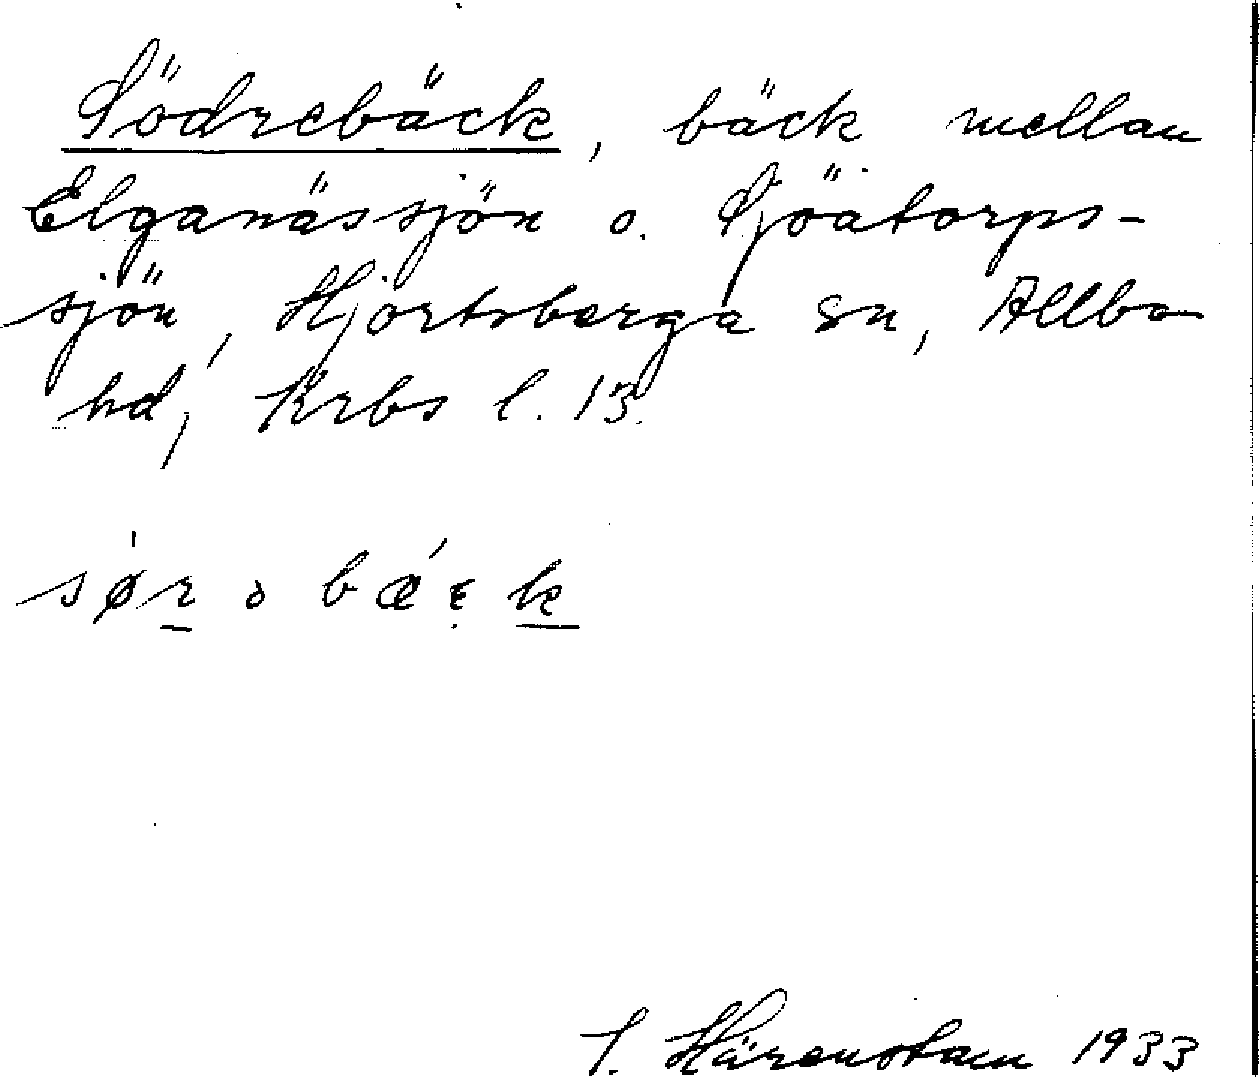 Södrebäck, bäck mellan
Elganässjön o. Sjöatorps-
sjön, Hjortsberga sn, Allbo
hd, Krbs l. 13.
sø̀r ə bǽ ε k
J. Härenstam 1933